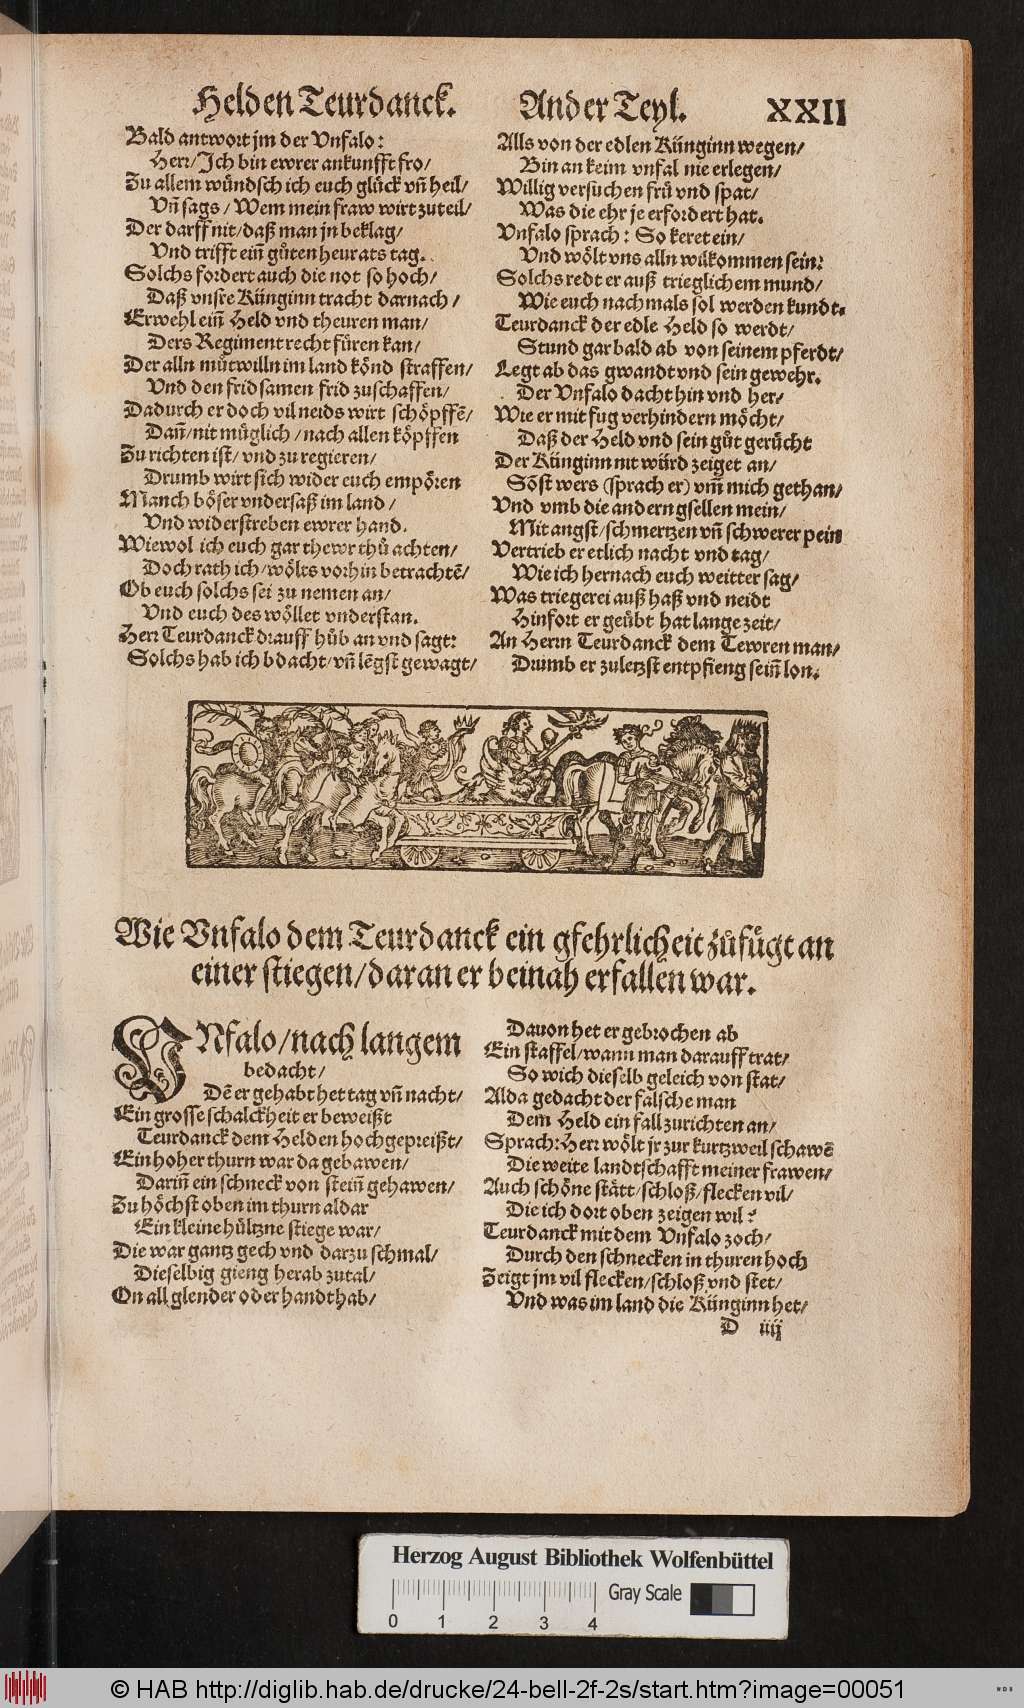 Helden Teurdanck. Ander Teyl. XXII
Bald antwort jm der Vnfalo:
Herr/Jch bin ewrer ankunfft fro/
Zu allem wündsch ich euch glück vñ heil/
Vñ sags/Wem mein fraw wirt zuteil/
Der darff nit/daß man jn beklag/
Vnd trifft eiñ gůten heurats tag.
Solchs fordert auch die not so hoch/
Daß vnsre Künginn tracht darnach/
Erwehl eiñ Held vnd theuren man/
Ders Regiment recht füren kan/
Der alln můtwilln im land könd straffen/
Vnd den fridsamen frid zuschaffen/
Dadurch er doch vil neids wirt schöpffẽ/
Dañ/nit müglich/nach allen köpffen
Zu richten ist/vnd zu regieren/
Drumb wirt sich wider euch empören
Manch böser vndersaß im land/
Vnd widerstreben ewrer hand.
Wiewol ich euch gar thewr thů achten/
Doch rath ich/wölts vorhin betrachtẽ/
Ob euch solchs sei zu nemen an/
Vnd euch des wöllet vnderstan.
Herr Teurdanck drauff hůb an vnd sagt:
Solchs hab ich bdacht/vñ lẽgst gewagt/
Alls von der edlen Künginn wegen/
Bin an keim vnfal nie erlegen/
Willig versuchen frü vnd spat/
Was die ehr je erfordert hat.
Vnfalo sprach: So keret ein/
Vnd wölt vns alln wilkommen sein:
Solchs redt er auß trieglichem mund/
Wie euch nachmals sol werden kundt.
Teurdanck der edle Held so werdt/
Stund gar bald ab von seinem pferdt/
Legt ab das gwandt vnd sein gewehr.
Der Vnfalo dacht hin vnd her/
Wie er mit fug verhindern möcht/
Daß der Held vnd sein gůt gerücht
Der Künginn nit würd zeiget an/
Sõst wers (sprach er) vm̃ mich gethan/
Vnd vmb die andern gsellen mein/
Mit angst/schmertzen vñ schwerer pein
Vertrieb er etlich nacht vnd tag/
Wie ich hernach euch weitter sag/
Was triegerei auß haß vnd neidt
Hinfort er geübt hat lange zeit/
An Herrn Teurdanck dem Tewren man/
Drumb er zuletzst entpfieng seiñ lon.
Wie Vnfalo dem Teurdanck ein gfehrlicheit zůfügt an
einer stiegen/daran er beinah erfallen war.
VNfalo/nach langem
bedacht/
Dẽ er gehabt het tag vñ nacht/
Ein grosse schalckheit er beweißt
Teurdanck dem Helden hochgepreißt/
Ein hoher thurn war da gebawen/
Dariñ ein schneck von steiñ gehawen/
Zu höchst oben im thurn aldar
Ein kleine hültzne stiege war/
Die war gantz gech vnd darzu schmal/
Dieselbig gieng herab zutal/
On all glender oder handthab/
Dauon het er gebrochen ab
Ein staffel/wann man darauff trat/
So wich dieselb geleich von stat/
Alda gedacht der falsche man
Dem Held ein fall zurichten an/
Sprach: Herr wölt jr zur kurtzweil schawẽ
Die weite landtschafft meiner frawen/
Auch schöne stätt/schloß/flecken vil/
Die ich dort oben zeigen wil?
Teurdanck mit dem Vnfalo zoch/
Durch den schnecken in thuren hoch
Zeigt jm vil flecken/schloß vnd stet/
Vnd was im land die Künginn het/
D iiij
Herzog August Bibliothek Wolfenbüttel
Gray Scale
0 1 2 3 4
© HAB http://diglib.hab.de/drucke/24-bell-2f-2s/start.htm?image=00051